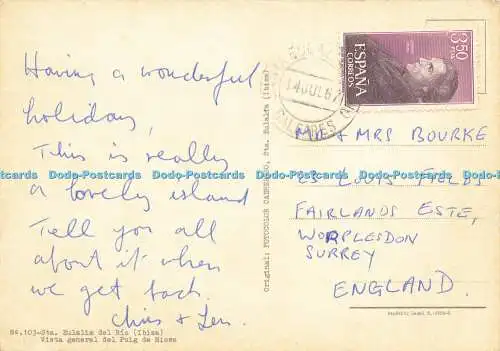 Having a wonderful
holiday,
This is really
a lovely island
Tell you all
about it when
we get back.
Chris + Len.
84.103-Sta. Eulalia del Río (Ibiza)
Vista general del Puig de Missa
Sta. Eulalia (Ibiza)
Original: FOTOCOLOR
14 JUL 67
BALEARES
ESPAÑA
CORREOS
3,50
PTA
MR + MRS BOURKE
LOUIS FIELDS
FAIRLANDS ESTE,
WORPLESDON
SURREY
ENGLAND.
Dodo-Postcards Dodo-Postcards Dodo-Postcards Dodo-Postcards Dodo-Postcards Dodo-Postcards